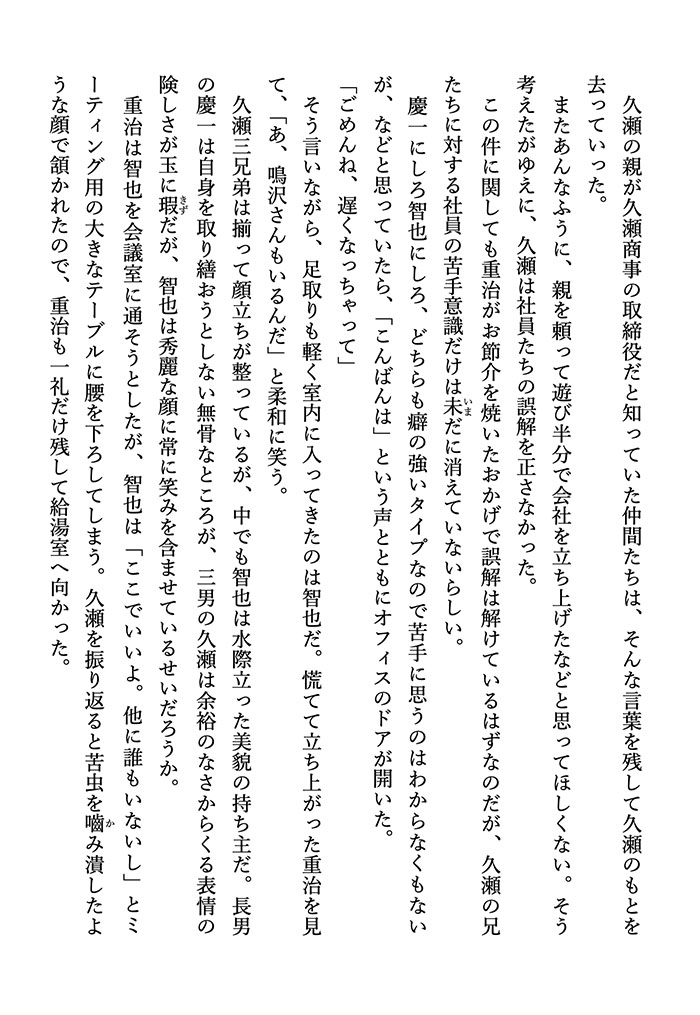 久瀬の親が久瀬商事の取締役だと知っていた仲間たちは、そんな言葉を残して久瀬のもとを
去っていった。
　またあんなふうに、親を頼って遊び半分で会社を立ち上げたなどと思ってほしくない。そう
考えたがゆえに、久瀬は社員たちの誤解を正さなかった。
　この件に関しても重治がお節介を焼いたおかげで誤解は解けているはずなのだが、久瀬の兄
たちに対する社員の苦手意識だけは未いまだに消えていないらしい。
　慶一にしろ智也にしろ、どちらも癖の強いタイプなので苦手に思うのはわからなくもない
が、などと思っていたら、「こんばんは」という声とともにオフィスのドアが開いた。
「ごめんね、遅くなっちゃって」
　そう言いながら、足取りも軽く室内に入ってきたのは智也だ。慌てて立ち上がった重治を見
て、「あ、鳴沢さんもいるんだ」と柔和に笑う。
　久瀬三兄弟は揃って顔立ちが整っているが、中でも智也は水際立った美貌の持ち主だ。長男
の慶一は自身を取り繕おうとしない無骨なところが、三男の久瀬は余裕のなさからくる表情の
険しさが玉に瑕きずだが、智也は秀麗な顔に常に笑みを含ませているせいだろうか。
　重治は智也を会議室に通そうとしたが、智也は「ここでいいよ。他に誰もいないし」とミ
ーティング用の大きなテーブルに腰を下ろしてしまう。久瀬を振り返ると苦虫を嚙かみ潰したよ
うな顔で頷かれたので、重治も一礼だけ残して給湯室へ向かった。